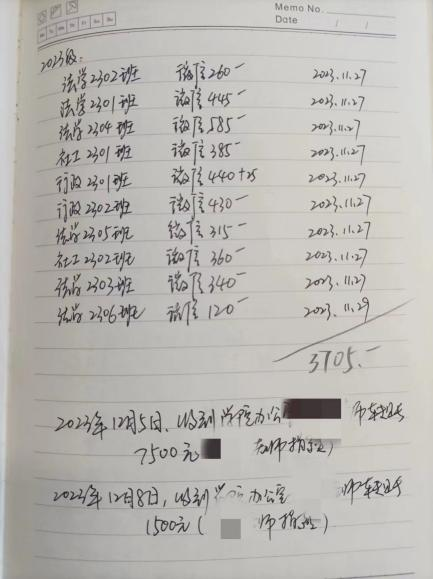 Memo No.
Date / /
2023级:
法学2302班 微信260- 2023.11.27
法学2301班 微信445- 2023.11.27
法学2304班 微信585- 2023.11.27
社工2301班 微信385- 2023.11.27
行政2301班 微信440+25 2023.11.27
行政2302班 微信430- 2023.11.27
法学2305班 微信315- 2023.11.27
社工2302班 微信360- 2023.11.27
法学2303班 微信340- 2023.11.27
法学2306班 微信120- 2023.11.29
3705.-
2023年12月5日,收到学院办公室 师转
7500元 老师
2023年12月8日,收到学院办公室 师转
1500元( 师